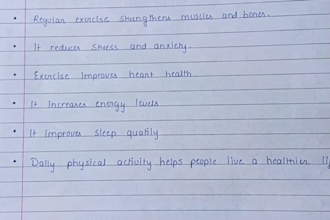 • Regular exercise strengthens muscles and bones.
• It reduces stress and anxiety.
• Exercise Improves heart health
• It Increases energy levels
• It Improves sleep quatily
• Daily physical activity helps people live a healthier